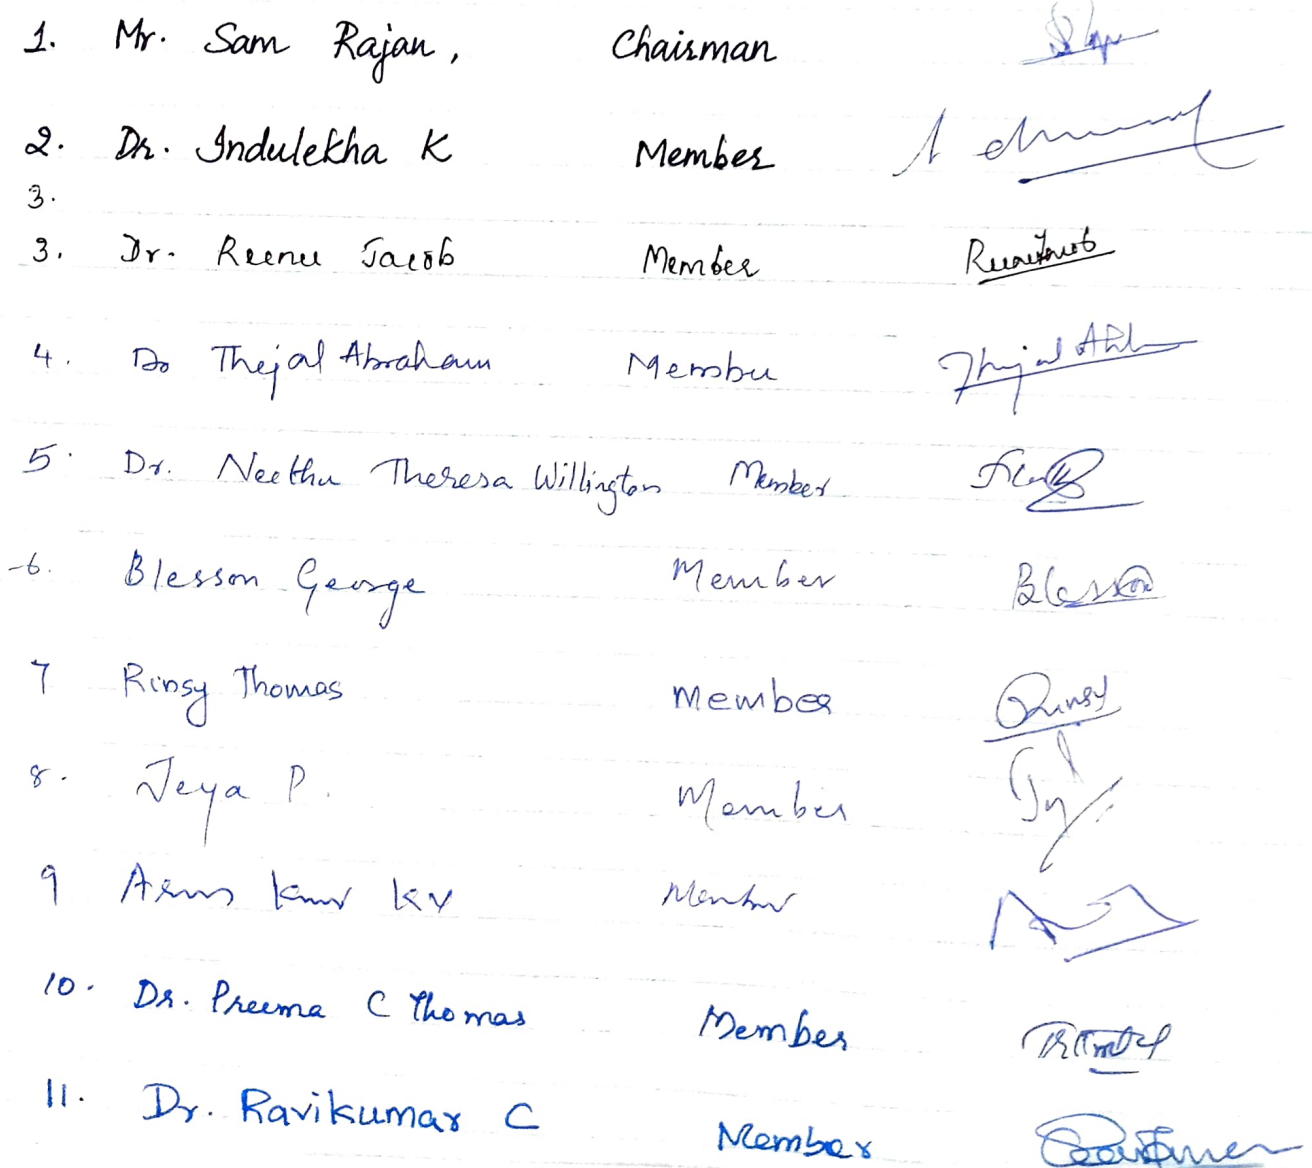 1. Mr. Sam Rajan, Chairman
2. Dr. Indulekha K Member
3.
3. Dr. Reenu Jacob Member ReenuJacob
4. Dr Thejal Abraham Member Thejal
5. Dr. Neethu Theresa Willington Member
6. Blesson George Member Blesson
7 Rinsy Thomas Member Rinsy
8. Jeya P. Member
9 Arun Kumar KV Member
10. Dr. Preema C Thomas Member
11. Dr. Ravikumar C Member